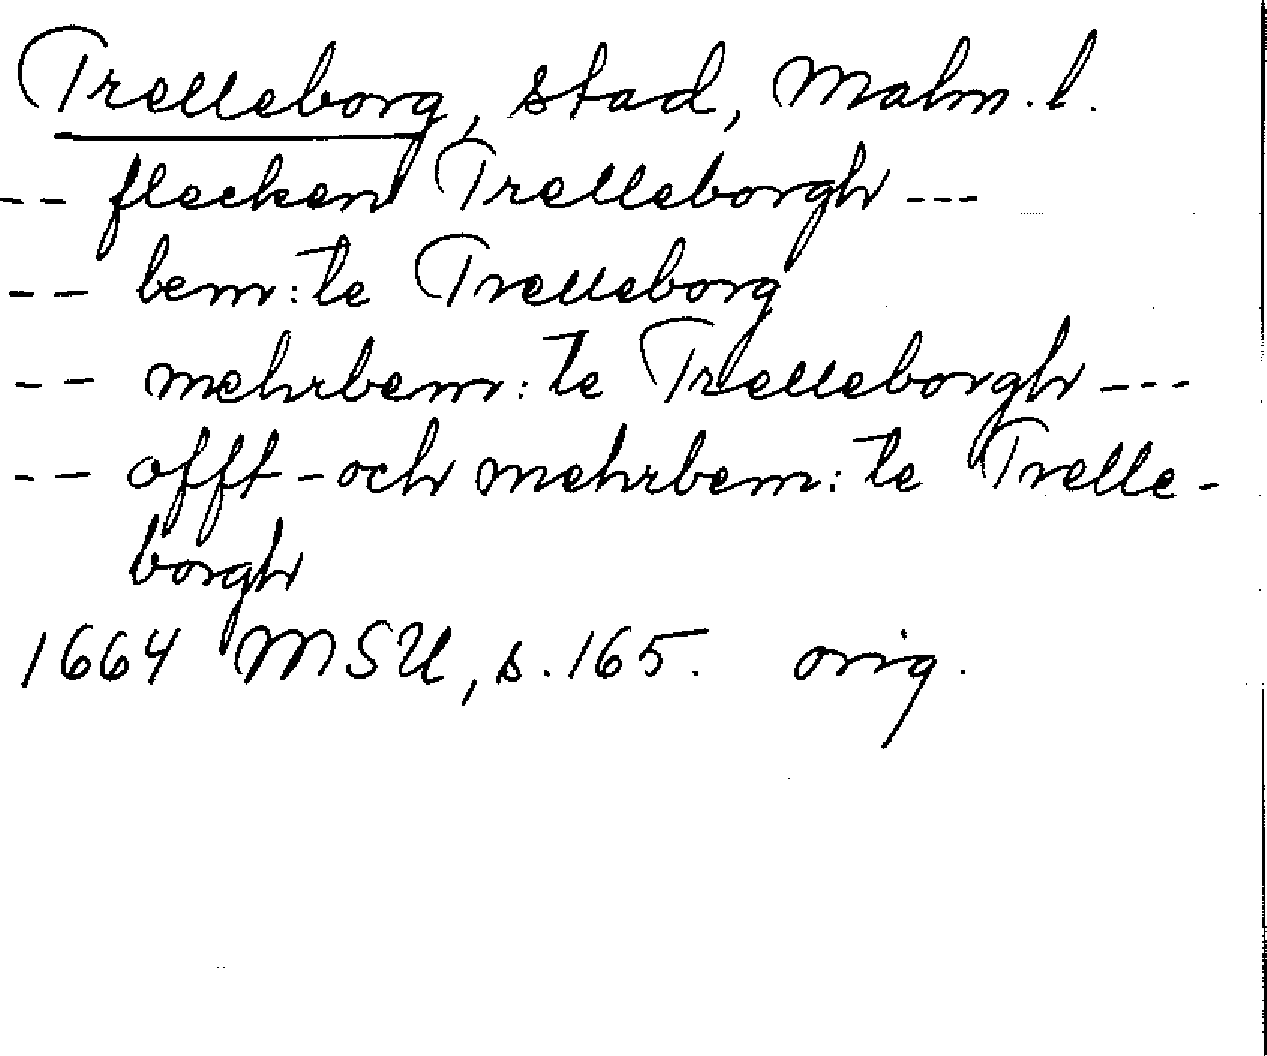 Trelleborg, stad, Malm. l.
-- flecken Trelleborgh ---
-- bem:te Trelleborg
-- mehrbem:te Trelleborgh ---
-- offt-och mehrbem:te Trelle-
borgh
1664 MSU, s. 165. orig.